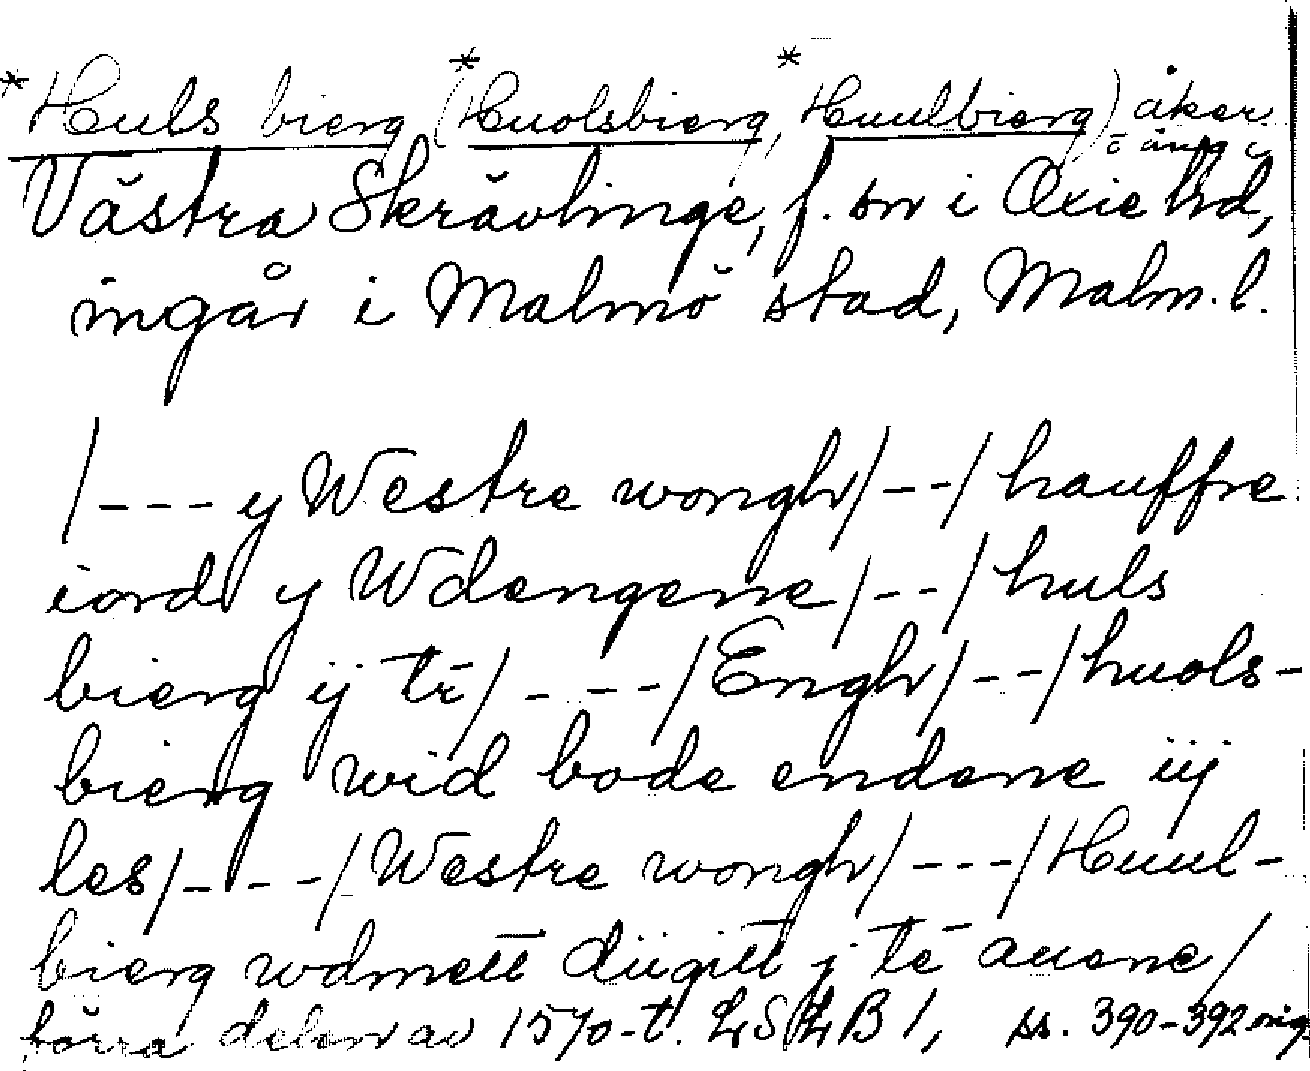 *Huls bierg (*Huolsbierg, *Huulbierg) åker
o äng i
Västra Skrävlinge, f. sn i Oxie hd,
ingår i Malmö stad, Malm. l.
/--- y Westre wongh/--/hauffre
iord y Wdengene/--/huls
bierg ij tr/----/Engh/--/huols-
bierg wid bode endene iij
les/----/Westre wongh/---/Huul-
bierg wdmett diigitt j te auene/
förra delen av 1570-t. ss. 390-392